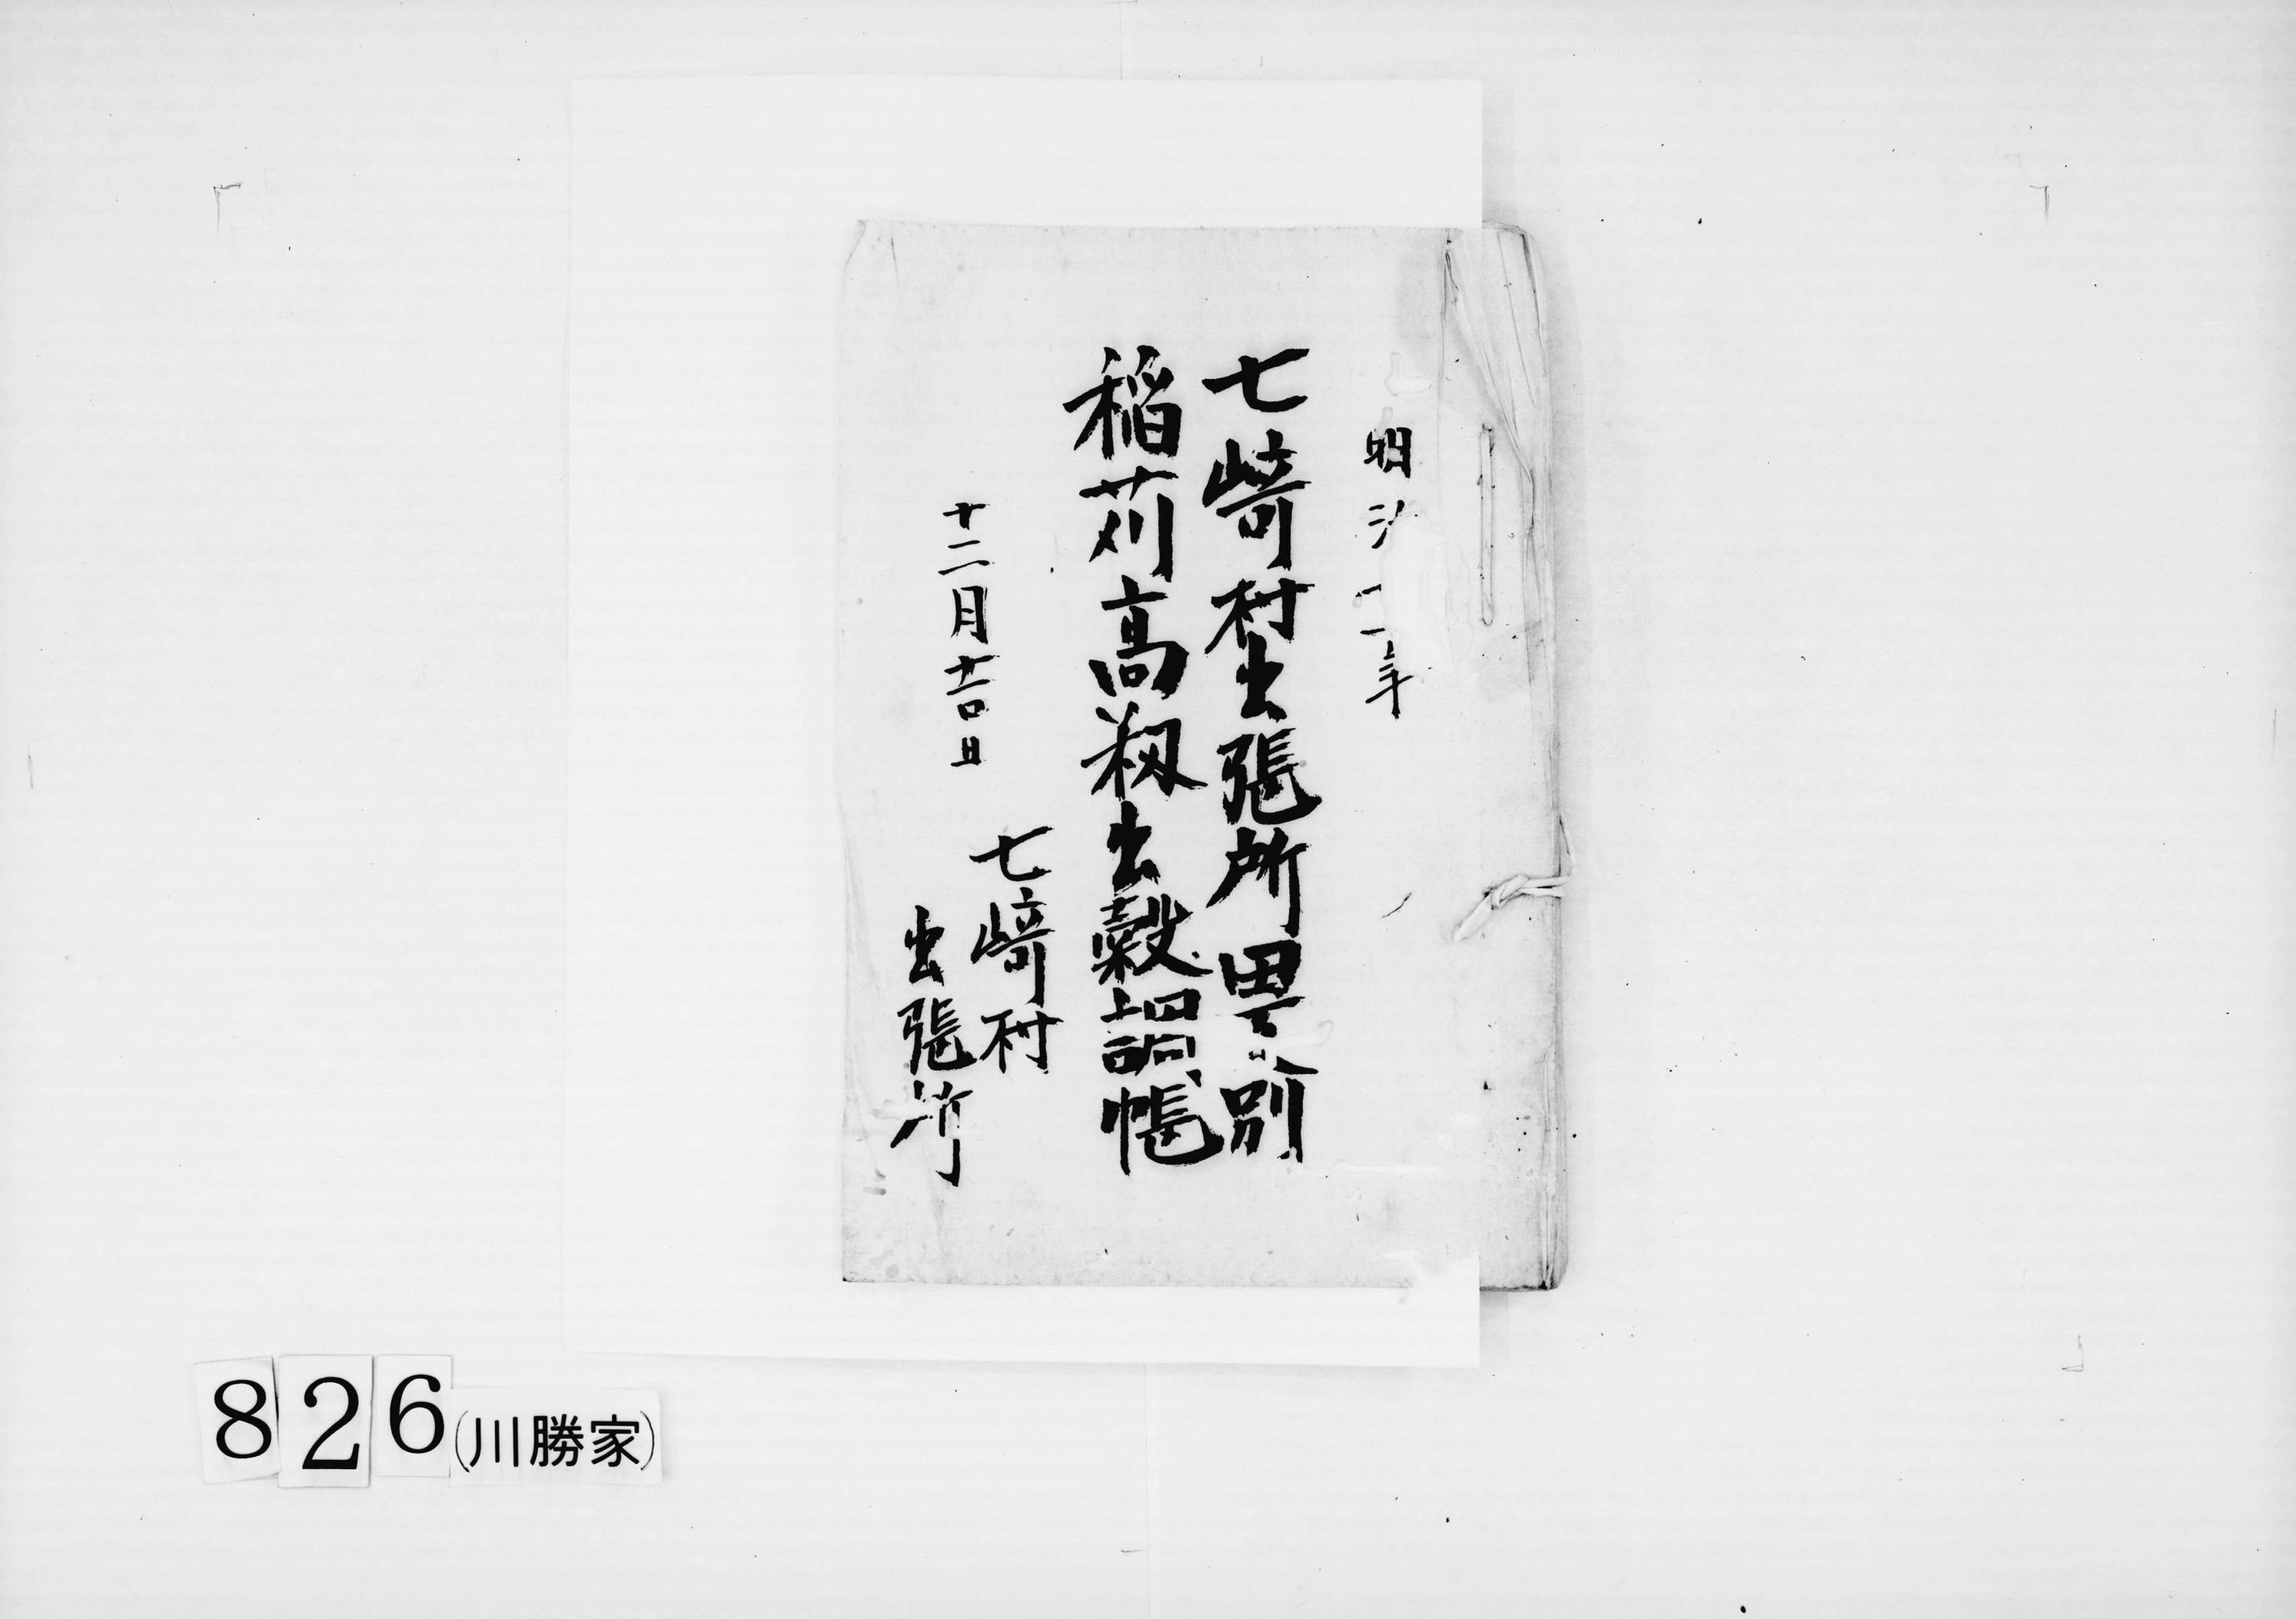 明治二年
七崎村出張所畳別
稲苅高籾出穀調帳
十二月十二日
七崎村
出張所
826(川勝家)